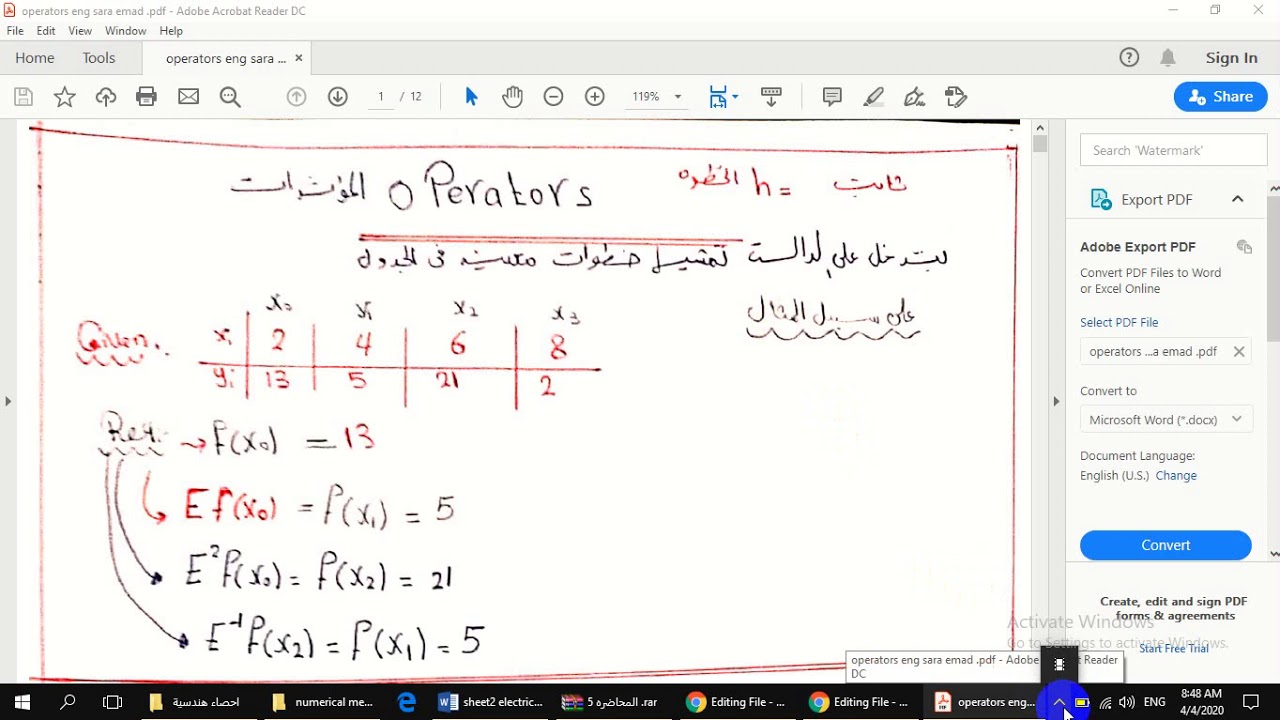 operators eng sara emad .pdf - Adobe Acrobat Reader DC
File Edit View Window Help
Home Tools operators eng sara ... × Sign In
1 / 12 119% Share
المؤثرات OPerators
الخطوه h = ثابت
بتدخل على لدالست تمثيل خطوات معينه فى الجدول
على سبيل المثال
x₀ x₁ x₂ x₃
Given. xᵢ 2 4 6 8
yᵢ 13 5 21 2
Req. → f(x₀) = 13
E f(x₀) = f(x₁) = 5
E² f(x₀) = f(x₂) = 21
E⁻¹ f(x₂) = f(x₁) = 5
Search 'Watermark'
Export PDF
Adobe Export PDF
Convert PDF Files to Word
or Excel Online
Select PDF File
operators ...a emad .pdf
Convert to
Microsoft Word (*.docx)
Document Language:
English (U.S.) Change
Convert
Create, edit and sign PDF
forms & agreements
Start Free Trial
Activate Windows
Go to Settings to activate Windows.
operators eng sara emad .pdf - Adobe Acrobat Reader
DC
احصاء هندسية
numerical me...
sheet2 electric...
المحاضره 5 .rar
Editing File - ...
Editing File - ...
operators eng...
ENG
8:48 AM
4/4/2020